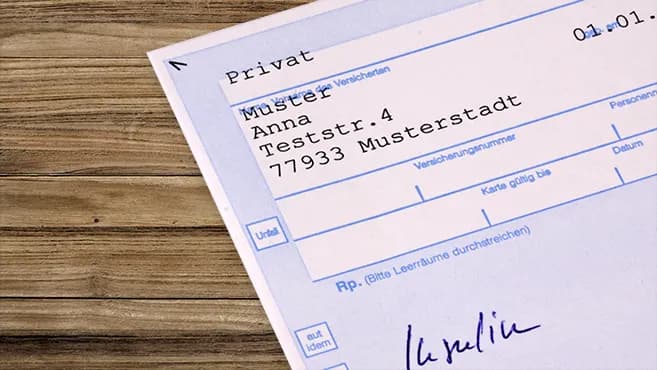 Privat
01.01.
Name, Vorname des Versicherten
geb. am
Muster
Anna
Teststr.4
77933 Musterstadt
Versicherungsnummer
Personen
Karte gültig bis
Datum
Unfall
Rp. (Bitte Leerräume durchstreichen)
aut
idem
Insulin